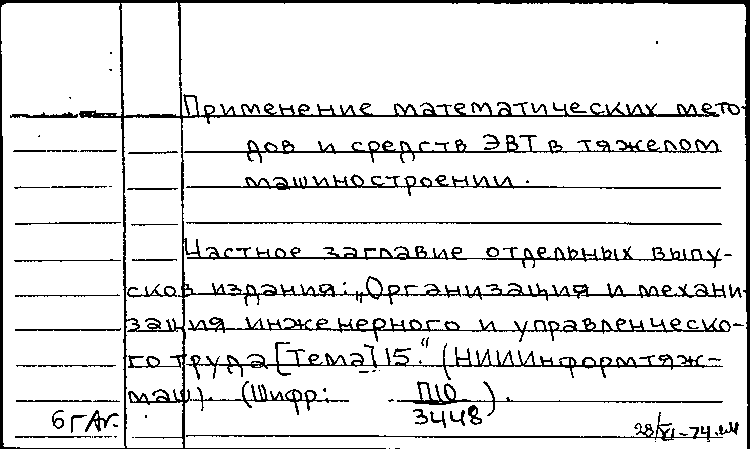 Применение математических мето-
дов и средств ЭВТ в тяжелом
машиностроении.
Частное заглавие отдельных выпу-
сков издания: „Организация и механи-
зация инженерного и управленческо-
го труда [Тема] 15." (НИИИнформтяж-
маш). (Шифр: П10/3448).
28/XI-74